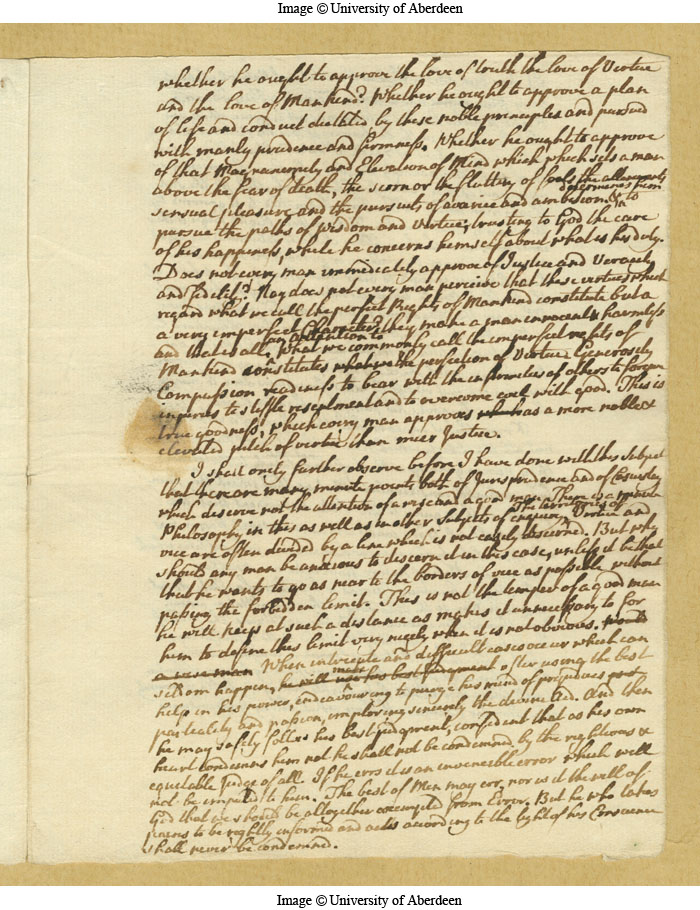 Image © University of Aberdeen
whether he ought to approve the love of truth the love of Virtue
and the love of Mankind? Whether he ought to approve a plan
of life and conduct dictated by these noble principles and pursued
with manly prudence and firmness. Whether he ought to approve
of that Magnanimity and Elevation of Mind which which sets a man
above the fear of death, the scorn or the flattery of fools the allurements of
sensual pleasure and the pursuits of avarice and ambition. & to
pursue the paths of Wisdom and Virtue; trusting to God the care
of his happiness, while he concerns himself about what is his duty.
Does not every man immediately approve of Justice and Veracity
and fidelity? Nay does not every man perceive that these virtues which
regard what we call the perfect Rights of Mankind constitute but a
a very imperfect Character? they make a man innocent & harmless
and that is all, an attention to What we commonly call the imperfect rights of
Mankind constitutes the perfection of Virtue. Generosity
Compassion readiness to bear with the infirmities of others to forgive
injuries to stifle resentment and to overcome evil with good. This is
true goodness, which every man approves as a more noble &
elevated pitch of virtue than meer Justice.
I shall only further observe before I have done with this Subject
that there are many minute points both of Jurisprudence and of Casuistry
which deserve not the attention of a wise and a good man. There is a
Philosophy in this as well as in other Subjects of enquiry. The territories of Virtue and
vice are often divided by a line which is not easily discerned. But why
should any man be anxious to discern it in this case, unless it be that
that he wants to go as near to the borders of vice as possible without
passing the forbidden limit. This is not the temper of a good man
he will keep at such a distance as makes it unnecessary to for
him to define this limit very nicely when it is not obvious. would
a wise man When intricate and difficult cases occur which can
seldom happen, he will his best Judgment after using the best
help in his power, endeavouring to purge his mind of prejudices
partiality and passion, imploring sincerely the divine Aid. And then
he may safely follow his best judgment, confident that as his own
heart condemns him not he shall not be condemned by the righteous &
equitable Judge of all. If he errs it is an invincible error which will
not be imputed to him. The best of Men may err, nor is it the will of
God that we should be altogether exempted from Error. But he who takes
pains to be rightly informed and acts according to the light of his Conscience
shall never be condemned.
Image © University of Aberdeen